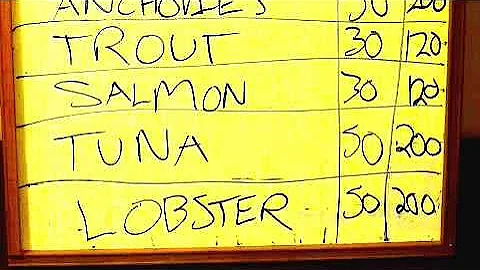 ANCHOVIES 50 200
TROUT 30 120
SALMON 30 120
TUNA 50 200
LOBSTER 50 200